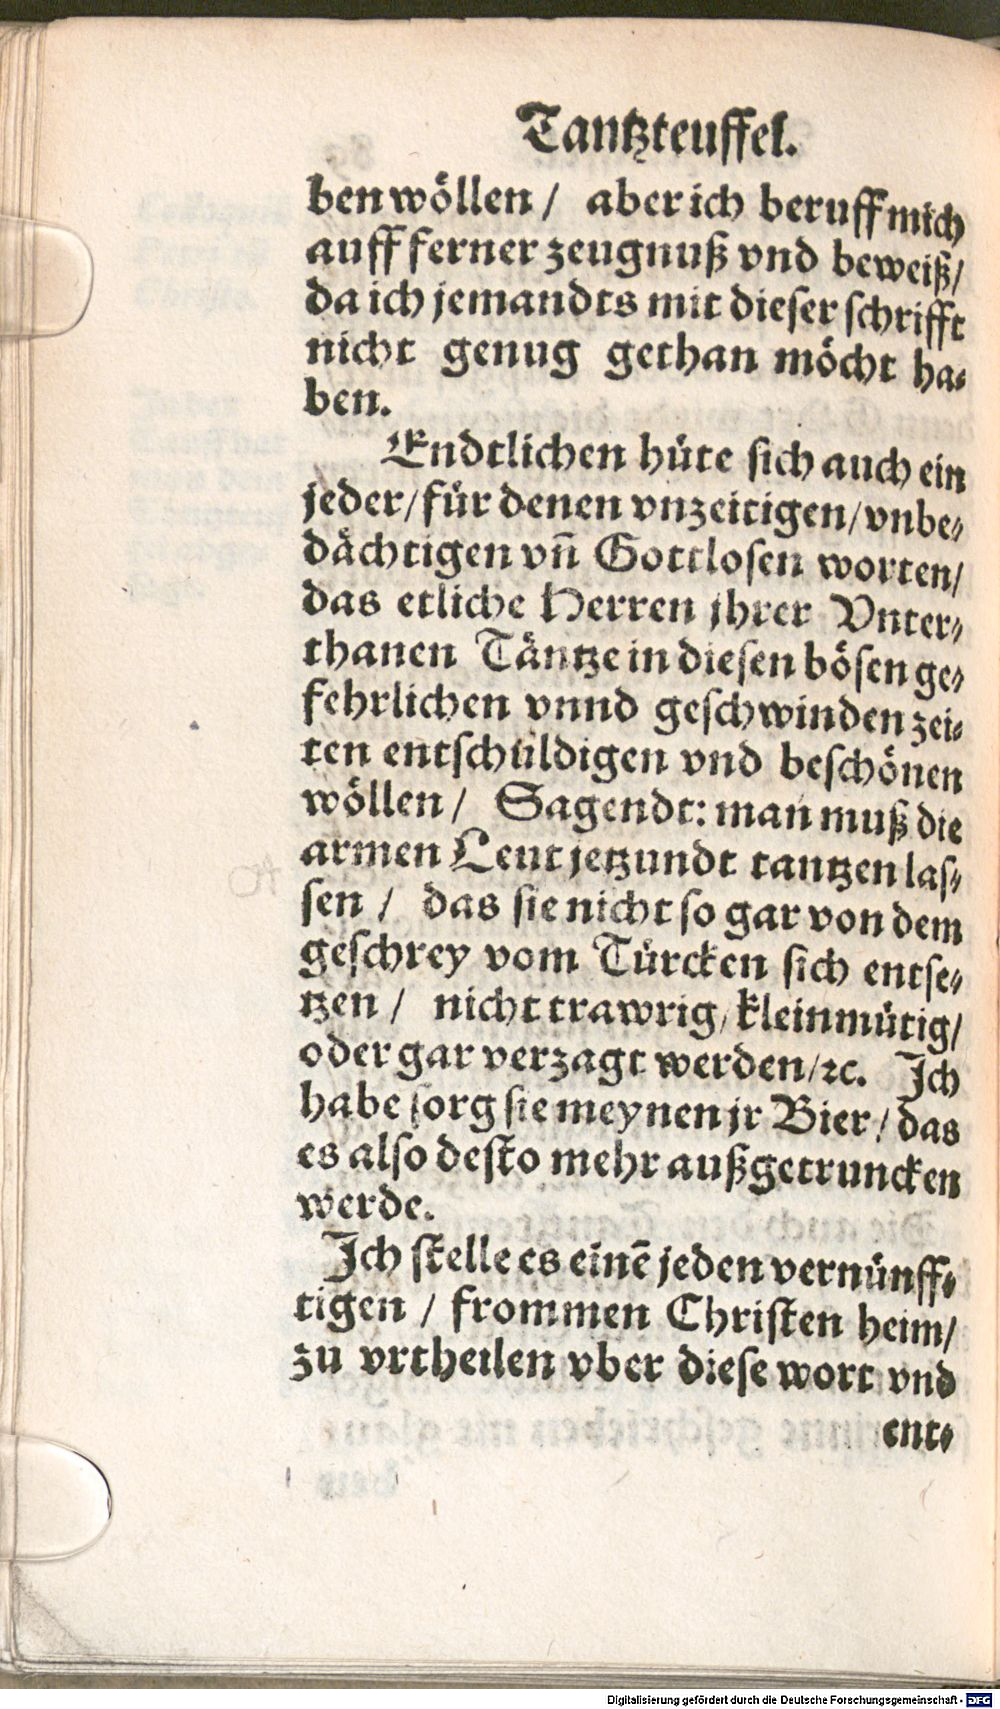 Tantzteuffel.
ben wöllen / aber ich beruff mich
auff ferner zeugnuß vnd beweiß/
da ich jemandts mit dieser schrifft
nicht genug gethan möcht ha⸗
ben.
Endtlichen hüte sich auch ein
jeder/für denen vnzeitigen/vnbe⸗
dächtigen vñ Gottlosen worten/
das etliche Herren jhrer Vnter⸗
thanen Täntze in diesen bösen ge⸗
fehrlichen vnnd geschwinden zei⸗
ten entschüldigen vnd beschönen
wöllen / Sagendt: man muß die
armen Leut jetzundt tantzen las⸗
sen / das sie nicht so gar von dem
geschrey vom Türcken sich entse⸗
tzen / nicht trawrig/kleinmütig/
oder gar verzagt werden/ꝛc. Ich
habe sorg sie meynen jr Bier/das
es also desto mehr außgetruncken
werde.
Ich stelle es einē jeden vernünff⸗
tigen / frommen Christen heim/
zu vrtheilen vber diese wort vnd
ent⸗
Digitalisierung gefördert durch die Deutsche Forschungsgemeinschaft - DFG